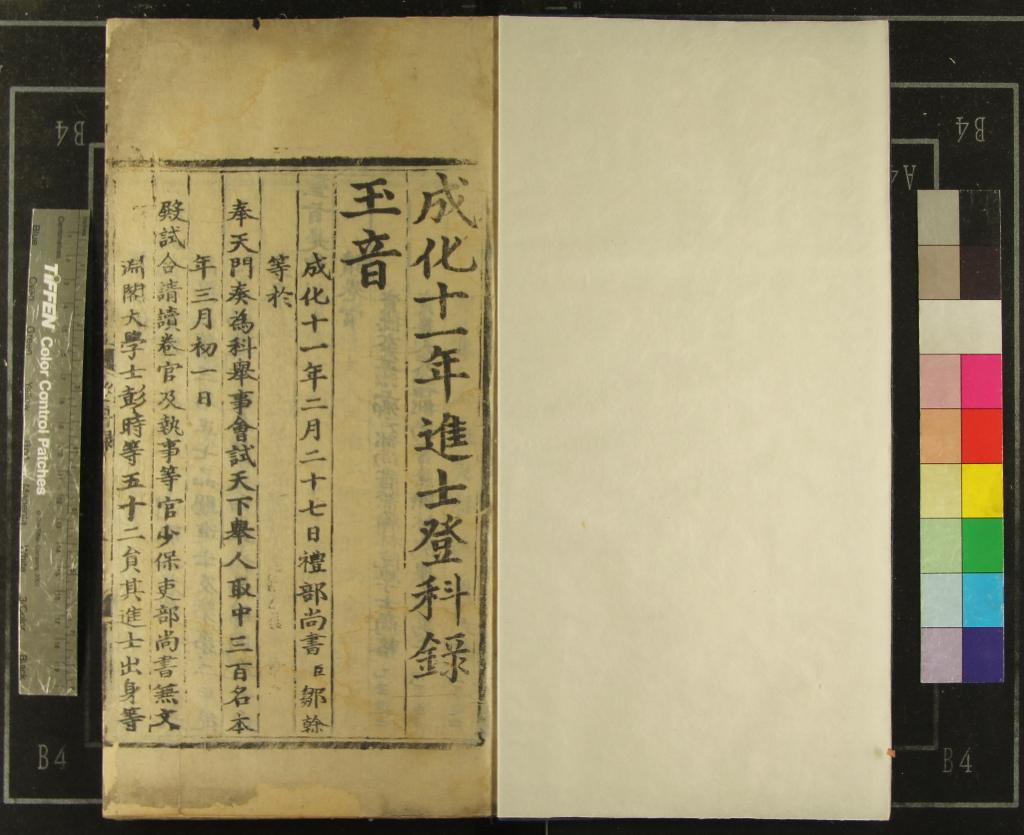 成化十一年進士登科錄
玉音
成化十一年二月二十七日禮部尚書臣鄒榦
等於
奉天門奏為科舉事會試天下舉人取中三百名本
年三月初一日
殿試合請讀卷官及執事等官少保吏部尚書兼文
淵閣大學士彭時等五十二員其進士出身等
TIFFEN Color Control Patches
B4
B4
B4
B4
A4